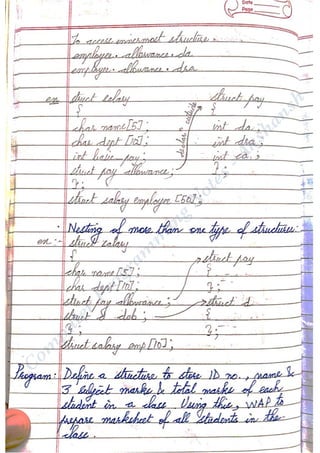 Date
Page
To access innermost structure.
employee. allowance. da
employee. allowance. dra
ex. struct salary struct pay
{ {
char name[5]; int da
char dept [10]; int dra;
int basic pay; int ca;
struct pay allowance; };
declar outside
};
struct salary employee [50];
Nesting of more than one type of structures:
ex:- struct salary
{ struct pay
char name [5]; {
char dept [10]; };
struct pay allowance; struct d
struct d dob; {
}; };
struct salary emp [10];
Program: Define a structure to store ID no., name &
3 subject marks & total marks of each
student in a class. Using this, WAP to
prepare marksheet of all students in the
class.